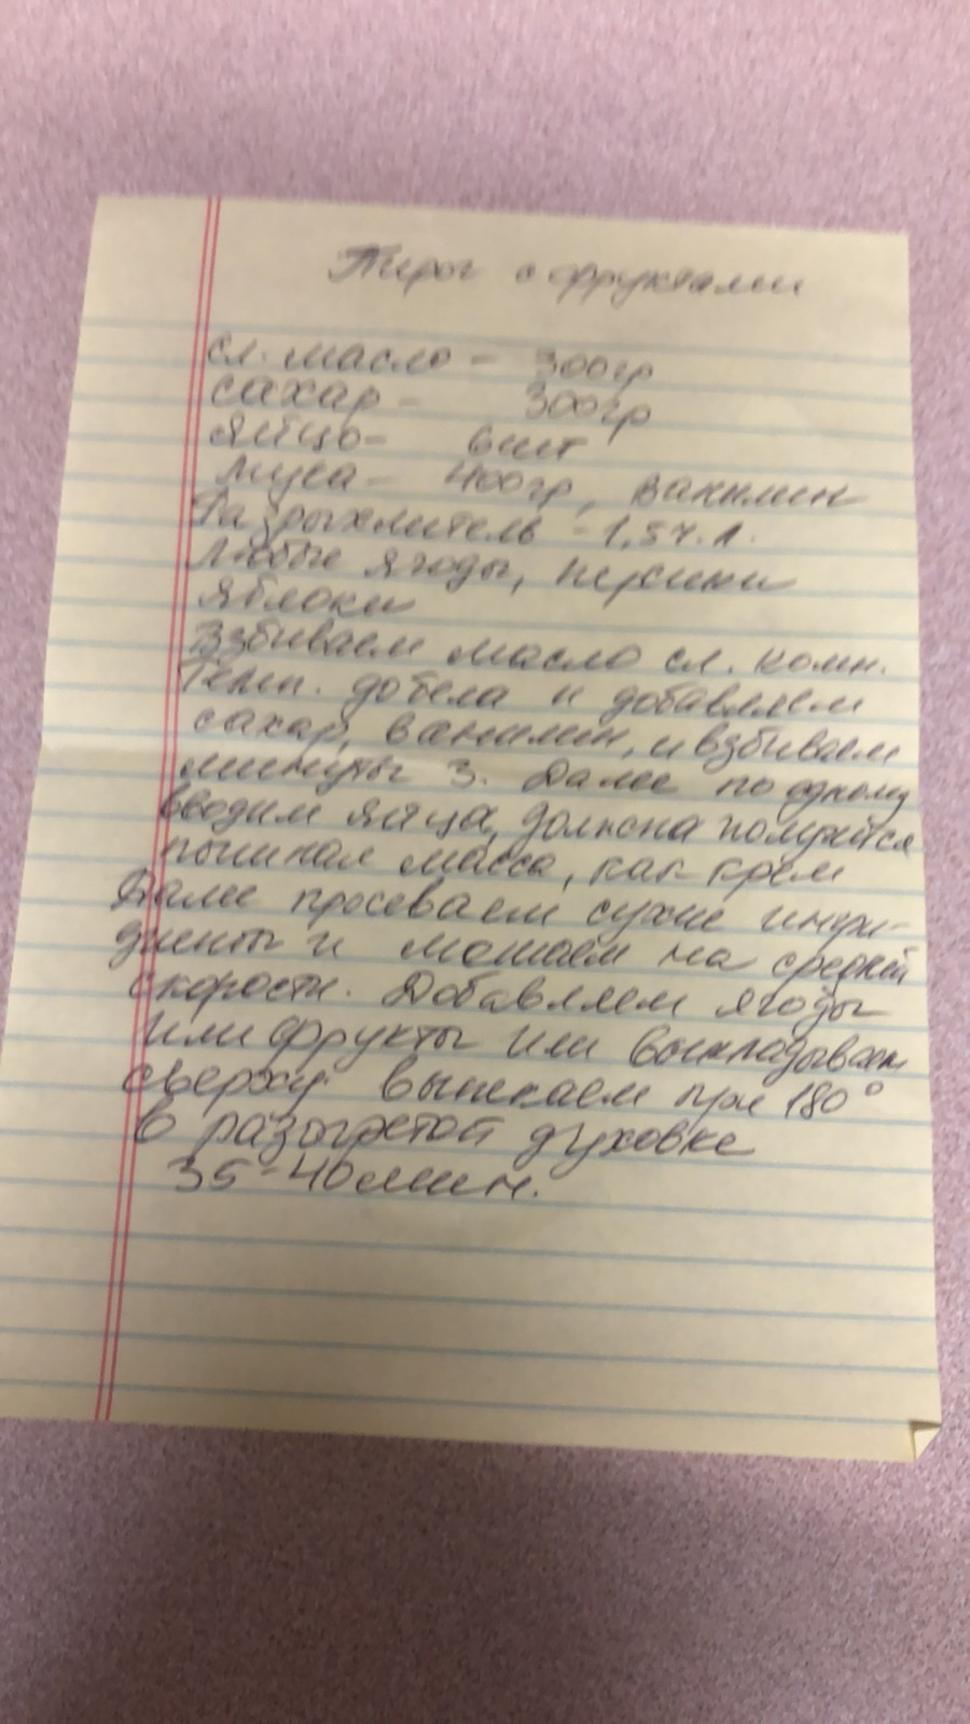 Пирог с фруктами
сл. масло - 300гр
сахар - 300гр
яйцо - 6шт
мука - 400гр, ванилин
Разрыхлитель - 1,5ч.л.
Любые ягоды, персики
яблоки
Взбиваем масло сл. комн.
темп. добела и добавляем
сахар, ванилин, и взбиваем
минуты 3. Далее по одному
вводим яйца, должна получится
пышная масса, как крем
Далее просеваем сухие ингри-
диенты и мешаем на средней
скорости. Добавляем ягоды
или фрукты или выкладываем
сверху. Выпекаем при 180°
в разогретой духовке
35-40мин.